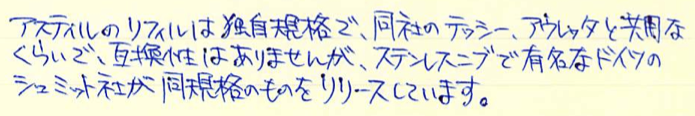 アスティルのリフィルは独自規格で、同社のテッシー、アウレッタと共用な
くらいで、互換性はありませんが、ステンレスニブで有名なドイツの
シュミット社が同規格のものをリリースしています。